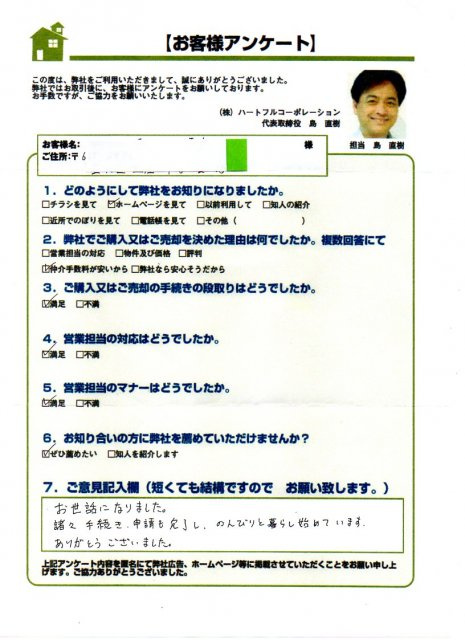 【お客様アンケート】
この度は、弊社をご利用いただきまして、誠にありがとうございました。
弊社ではお取引後に、お客様にアンケートをお願いしております。
お手数ですが、ご協力をお願いいたします。
(株) ハートフルコーポレーション
代表取締役 島 直樹
担当 島 直樹
お客様名: 様
ご住所:〒6
1. どのようにして弊社をお知りになりましたか。
□チラシを見て ☑ホームページを見て □以前利用して □知人の紹介
□近所でのぼりを見て □電話帳を見て □その他 ( )
2. 弊社でご購入又はご売却を決めた理由は何でしたか。複数回答にて
□営業担当の対応 □物件及び価格 □評判
☑仲介手数料が安いから □弊社なら安心そうだから
3. ご購入又はご売却の手続きの段取りはどうでしたか。
☑満足 □不満
4. 営業担当の対応はどうでしたか。
☑満足 □不満
5. 営業担当のマナーはどうでしたか。
☑満足 □不満
6. お知り合いの方に弊社を薦めていただけませんか?
☑ぜひ薦めたい □知人を紹介します
7. ご意見記入欄(短くても結構ですので お願い致します。)
お世話になりました。
諸々手続き、申請も完了し、のんびりと暮らし始めています。
ありがとうございました。
上記アンケート内容を匿名にて弊社広告、ホームページ等に掲載させていただくことをお願い申し上
げます。ご協力ありがとうございました。